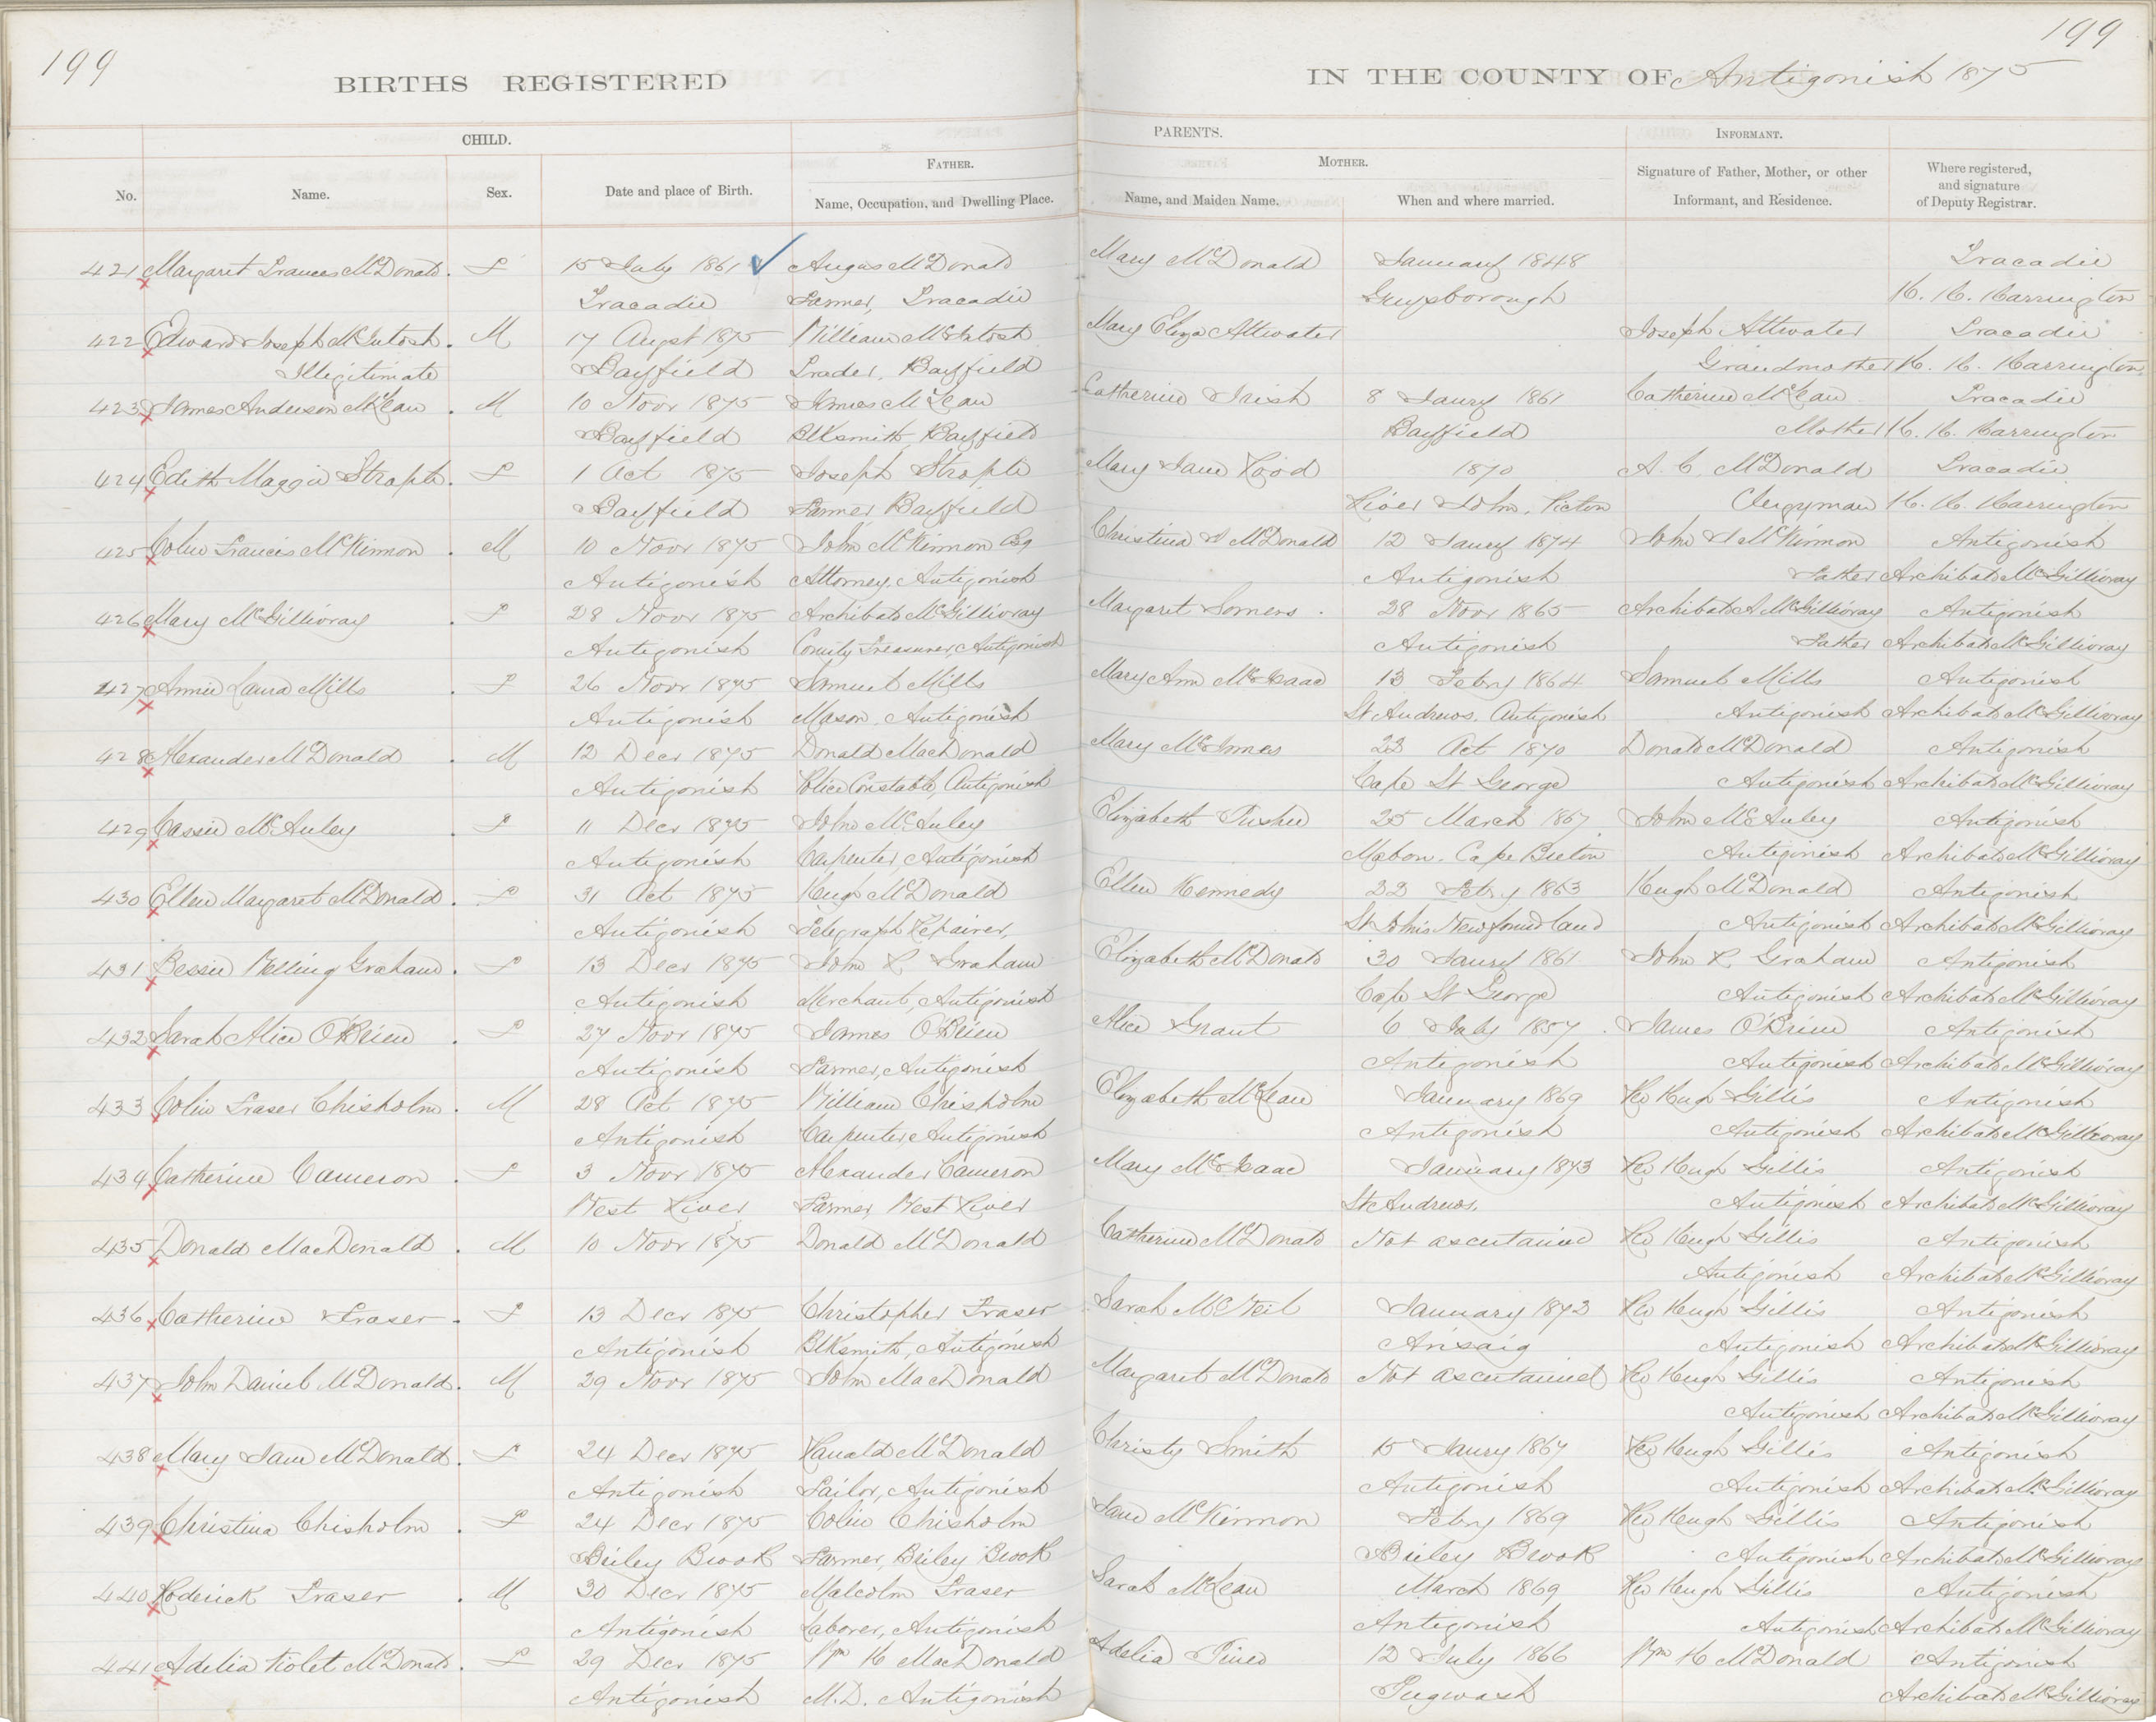 199
199
BIRTHS REGISTERED
IN THE COUNTY OF Antigonish 1875
CHILD.
PARENTS.
INFORMANT.
FATHER.
MOTHER.
No.
Name.
Sex.
Date and place of Birth.
Name, Occupation, and Dwelling Place.
Name, and Maiden Name.
When and where married.
Signature of Father, Mother, or other Informant, and Residence.
Where registered, and signature of Deputy Registrar.
421 Margaret Frances McDonald. F 15 July 1861 Angus McDonald Mary McDonald January 1848 Tracadie
Tracadie Farmer, Tracadie Guysborough H. H. Harrington
422 Edward Joseph McIntosh. M 17 Augst 1875 William McIntosh Mary Eliza Attwater Joseph Attwater Tracadie
Illegitimate Bayfield Trader, Bayfield Grandmother H. H. Harrington
423 James Anderson McLean. M 10 Novr 1875 James McLean Catherine 8 Jany 1861 Catherine McLean Tracadie
Bayfield Blksmith, Bayfield Bayfield Mother H. H. Harrington
424 Edith Maggie Strople. F 1 Oct 1875 Joseph Strople Mary Jane Hood 1870 A. C. McDonald Tracadie
Bayfield Farmer Bayfield River John, Picton Clergyman H. H. Harrington
425 Colin Francis McKinnon. M 10 Novr 1875 John McKinnon Esq Christina McDonald 12 Jany 1874 John J McKinnon Antigonish
Antigonish Attorney, Antigonish Antigonish Father Archibald McGillivray
426 Mary McGillivray. F 28 Novr 1875 Archibald McGillivray Margaret Somers. 28 Novr 1865 Archibald A McGillivray Antigonish
Antigonish County Treasurer, Antigonish Antigonish Father Archibald McGillivray
427 Annie Laura Mills. F 26 Novr 1875 Samuel Mills Mary Ann McIsaac 13 Febry 1864 Samuel Mills Antigonish
Antigonish Mason, Antigonish St Andrews, Antigonish Antigonish Archibald McGillivray
428 Alexander McDonald. M 12 Decr 1875 Donald MacDonald Mary McInnes 23 Oct 1870 Donald McDonald Antigonish
Antigonish Police Constable, Antigonish Cape St George Antigonish Archibald McGillivray
429 Cassie McAuley. F 11 Decr 1875 John McAuley Elizabeth Pushee 25 March 1867 John McAuley Antigonish
Antigonish Carpenter, Antigonish Mabou, Cape Breton Antigonish Archibald McGillivray
430 Ellen Margaret McDonald. F 31 Oct 1875 Hugh McDonald Ellen Kennedy 22 Febry 1863 Hugh McDonald Antigonish
Antigonish Telegraph Repairer, St Johns Newfoundland Antigonish Archibald McGillivray
431 Bessie Graham. F 13 Decr 1875 John R Graham Elizabeth McDonald 30 Jany 1861 John R Graham Antigonish
Antigonish Merchant, Antigonish Cape St George Antigonish Archibald McGillivray
432 Sarah Alice O'Brien. F 27 Novr 1875 James O'Brien Alice Grant 6 July 1857. James O'Brien Antigonish
Antigonish Farmer, Antigonish Antigonish Antigonish Archibald McGillivray
433 Colin Fraser Chisholm. M 28 Oct 1875 William Chisholm Elizabeth McLean January 1869 Rev Hugh Gillis Antigonish
Antigonish Carpenter, Antigonish Antigonish Antigonish Archibald McGillivray
434 Catherine Cameron. F 3 Novr 1875 Alexander Cameron Mary McIsaac January 1873 Rev Hugh Gillis Antigonish
West River Farmer, West River St Andrews. Antigonish Archibald McGillivray
435 Donald MacDonald. M 10 Novr 1875 Donald McDonald Catherine McDonald Not ascertained Rev Hugh Gillis Antigonish
Antigonish Archibald McGillivray
436 Catherine Fraser. F 13 Decr 1875 Christopher Fraser Sarah McNeil January 1873 Rev Hugh Gillis Antigonish
Antigonish Blksmith, Antigonish Arisaig Antigonish Archibald McGillivray
437 John Daniel McDonald. M 29 Novr 1875 John MacDonald Margaret McDonald Not ascertained Rev Hugh Gillis Antigonish
Antigonish Archibald McGillivray
438 Mary Jane McDonald. F 24 Decr 1875 Ranald McDonald Christy Smith 15 Jany 1867 Rev Hugh Gillis Antigonish
Antigonish Tailor, Antigonish Antigonish Antigonish Archibald McGillivray
439 Christina Chisholm. F 24 Decr 1875 Colin Chisholm Jane McKinnon Febry 1869 Rev Hugh Gillis Antigonish
Briley Brook Farmer, Briley Brook Briley Brook Antigonish Archibald McGillivray
440 Roderick Fraser. M 30 Decr 1875 Malcolm Fraser Sarah McLean March 1869 Rev Hugh Gillis Antigonish
Antigonish Laborer, Antigonish Antigonish Antigonish Archibald McGillivray
441 Adelia Violet McDonald. F 29 Decr 1875 Wm H MacDonald Adelia 12 July 1866 Wm H McDonald Antigonish
Antigonish M.D. Antigonish Pugwash Archibald McGillivray